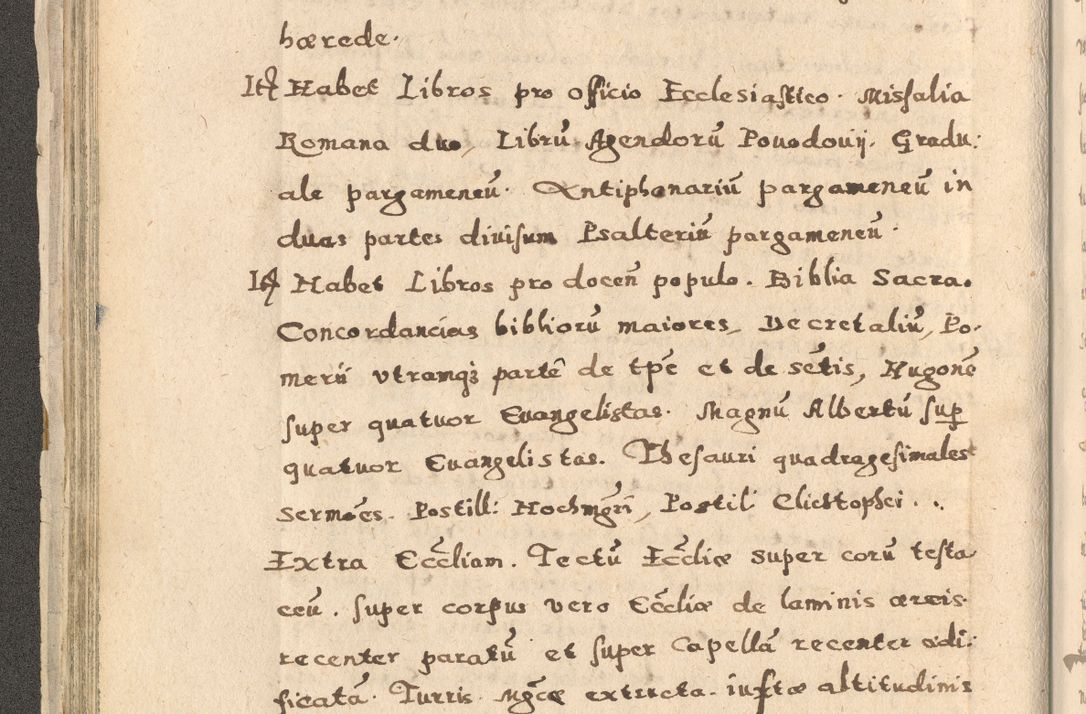 hærede.
Itē Habet Libros pro officio Ecclesiastico. Missalia
Romana duo, Librū Agendorū Pouodouij. Gradu:
ale pargameneū. Antiphonariū pargameneū in
duas partes diuisum Psalteriū pargameneū.
Itē Habet Libros pro docen̄ populo. Biblia Sacra.
Concordancias bibliorū maiores, Decretaliū, Po-
merii vtramqʒ partē de tp̄e et de sc̄tis, Hugonē
super quatuor Euangelistas. Magnū Albertū sup
quatuor Euangelistas. Thesauri quadragesimales
Sermōes. Postill: Hochmgri, Postil: Clichtophei...
Extra Eccliam. Tectū Eccliæ super corū testa
ceū. super corpus vero Eccliæ de laminis æreis
recenter paratū et super Capellā recenter ædi:
ficatā. Turris Mgcæ extructa. iustæ altitudinis